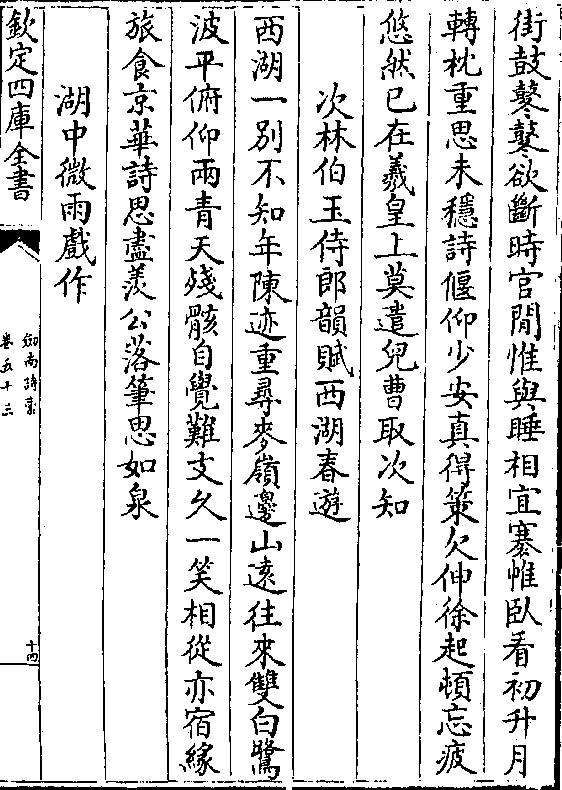 街鼓鼕鼕欲斷時官閒惟與睡相宜褰帷臥看初升月
轉枕重思未穩詩偃仰少安真得策欠伸徐起頓忘疲
悠然已在羲皇上莫遣兒曹取次知
次林伯玉侍郎韻賦西湖春遊
西湖一別不知年陳迹重尋麥嶺邊山遠往來雙白鷺
波平俯仰兩青天殘骸自覺難支久一笑相從亦宿緣
旅食京華詩思盡羨公落筆思如泉
湖中微雨戲作
欽定四庫全書
劍南詩藁
卷五十三
十四